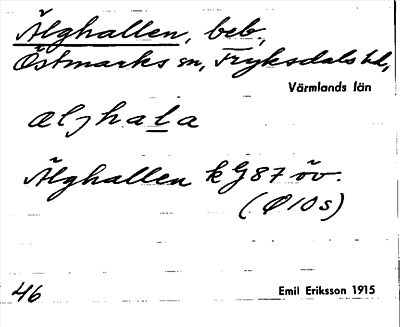 Älghallen, beb.,
Östmarks sn, Fryksdals hd,
Värmlands län
æljhala
Älghallen k G87 öv.
(Ø10s)
46
Emil Eriksson 1915